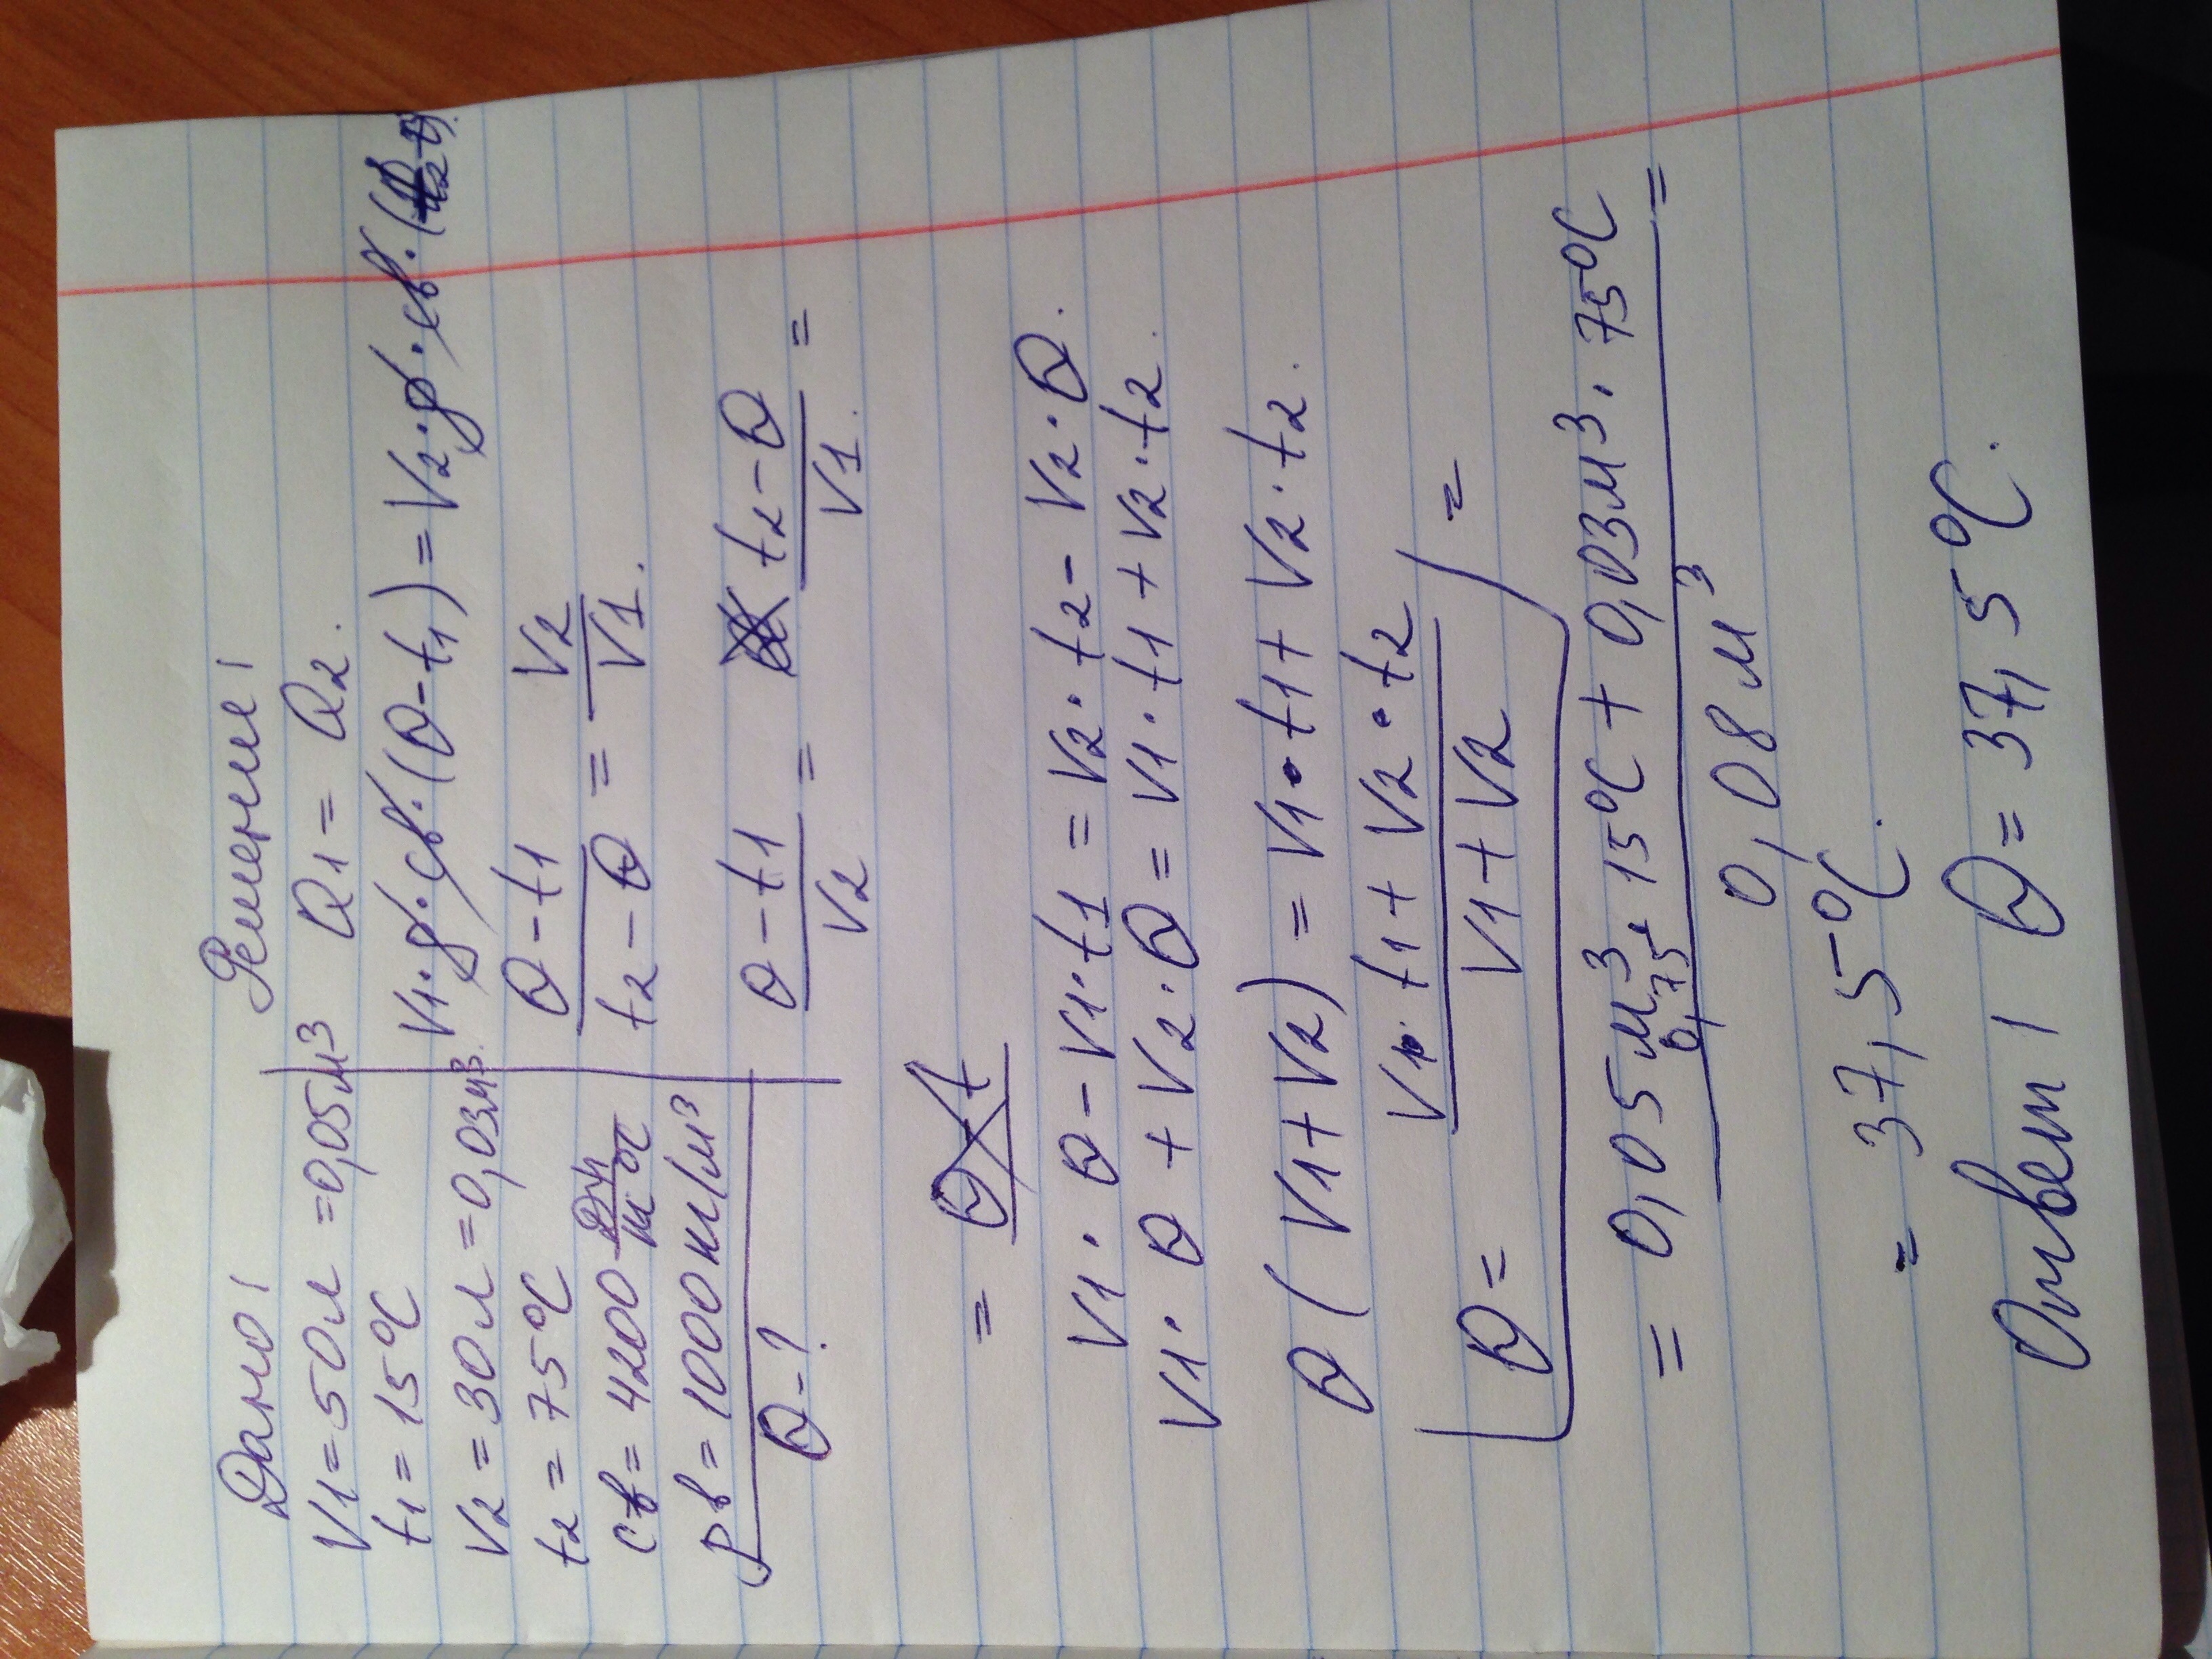 Дано:
V1 = 50 л = 0,05 м³
t1 = 15°C
V2 = 30 л = 0,03 м³.
t2 = 75°C
Cв = 4200 Дж/кг °C
ρв = 1000 кг/м³
Θ - ?
Решение:
Q1 = Q2.
V1·ρ·cв·(Θ-t1) = V2·ρ·cв·(t2-Θ).
(Θ-t1)/(t2-Θ) = V2/V1.
(Θ-t1)/V2 = (t2-Θ)/V1. =
=
V1·Θ - V1·t1 = V2·t2 - V2·Θ.
V1·Θ + V2·Θ = V1·t1 + V2·t2.
Θ(V1+V2) = V1·t1 + V2·t2.
Θ = (V1·t1 + V2·t2)/(V1+V2) =
= (0,05 м³ · 15°C + 0,03 м³ · 75°C)/(0,08 м³) =
0,75
= 37,5°C.
Ответ: Θ = 37,5°C.